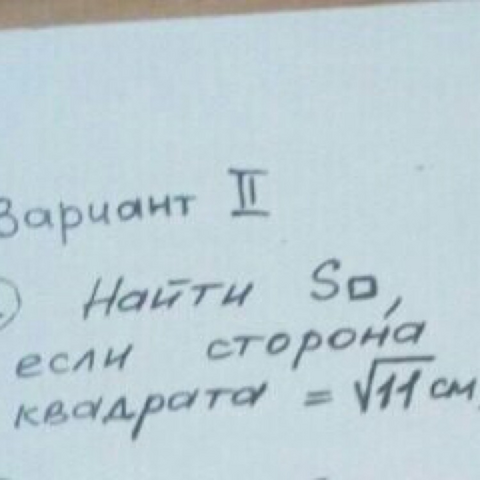 Вариант II
Найти S□,
если сторона
квадрата = √11 см,